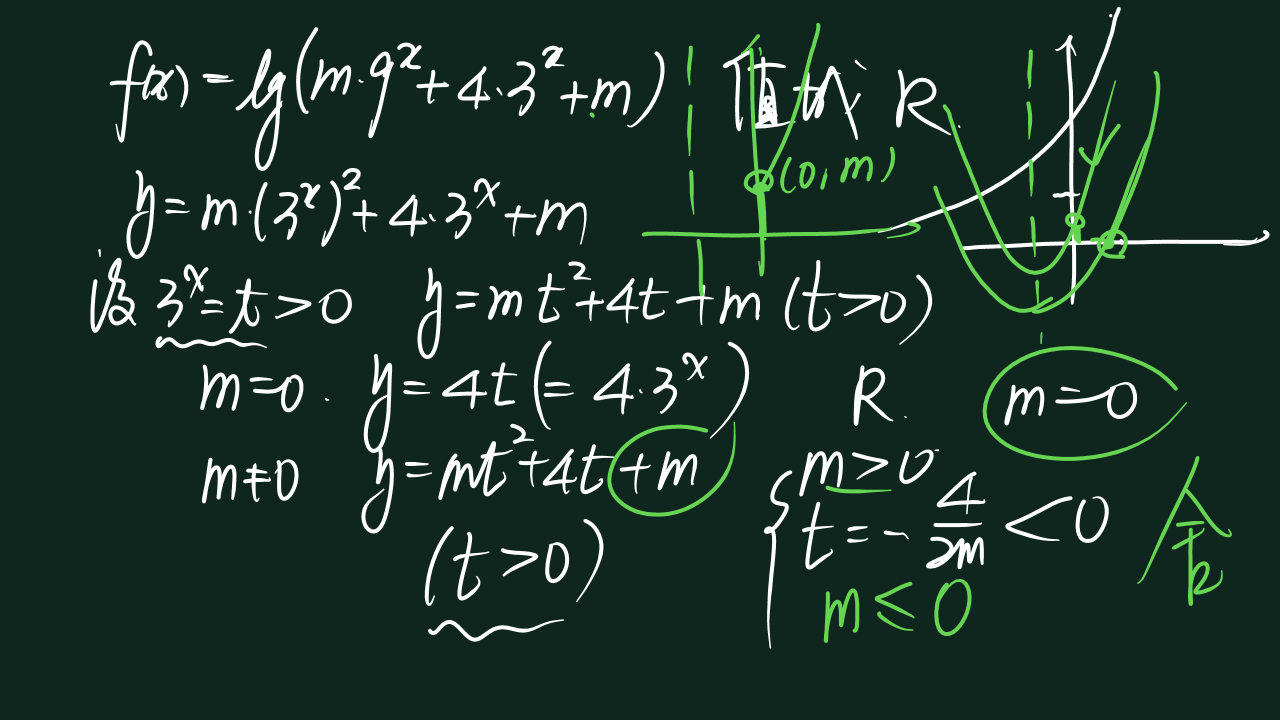 f(x) = lg(m·9^x + 4·3^x + m) 值域 R
(0, m)
y = m·(3^x)^2 + 4·3^x + m
设 3^x = t > 0 y = mt^2 + 4t + m (t > 0)
m = 0. y = 4t (= 4·3^x) R. m = 0
m ≠ 0 y = mt^2 + 4t + m
(t > 0)
m > 0
t = -4/2m < 0
m ≤ 0